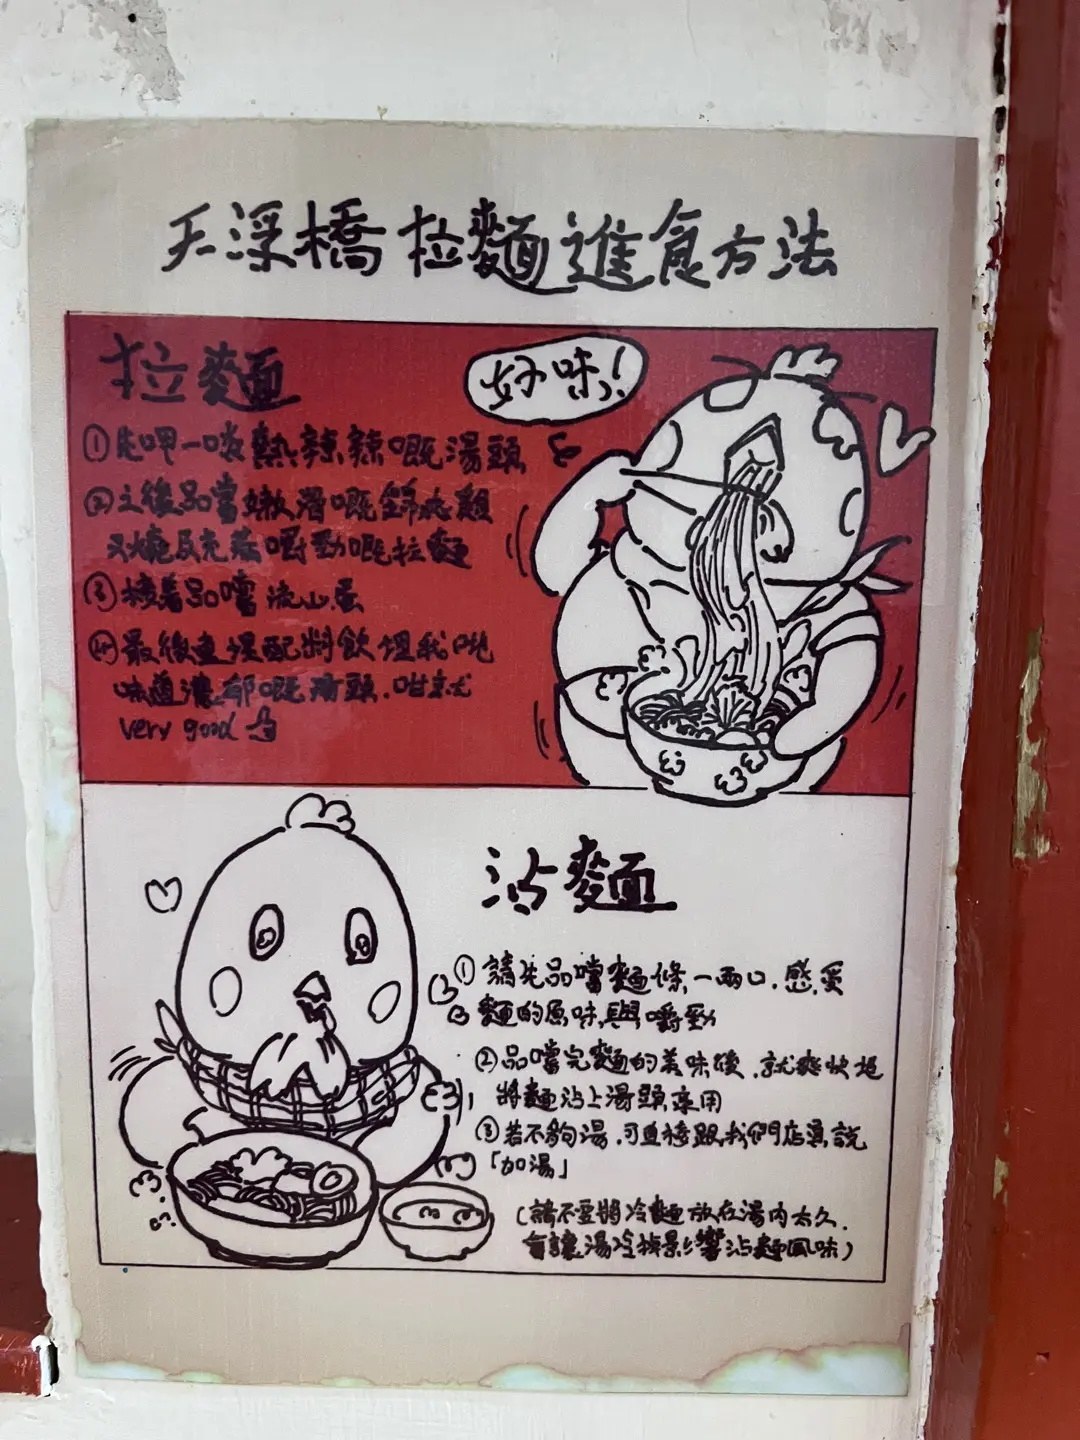 天浮橋拉麵進食方法
拉麵
好味!
①先呷一啖熱辣辣嘅湯頭
②之後品嚐嫩滑嘅
嚼勁嘅拉麵
③接着品嚐流心蛋
④最後食埋配料飲埋我哋
味道濃郁嘅湯頭.咁就
very good
沾麵
①請先品嚐麵條一兩口.感受
麵的原味與嚼勁
②品嚐完麵的美味後.就爽快地
將麵沾上湯頭享用
③若不夠湯.可直接跟我們店員說
「加湯」
(請不要將冷麵放在湯內太久.
會讓湯冷掉影響沾麵風味)